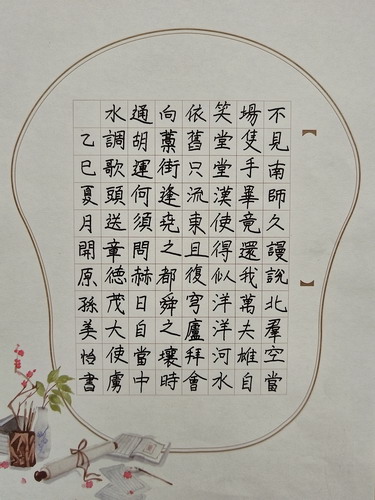 不見南師久謾說北羣空當
場隻手畢竟還我萬夫雄自
笑堂堂漢使得似洋洋河水
依舊只流東且復穹廬拜會
向藁街逢堯之都舜之壤時
通胡運何須問赫日自當中
水調歌頭送章德茂大使虜
乙巳夏月開原孫美怡書